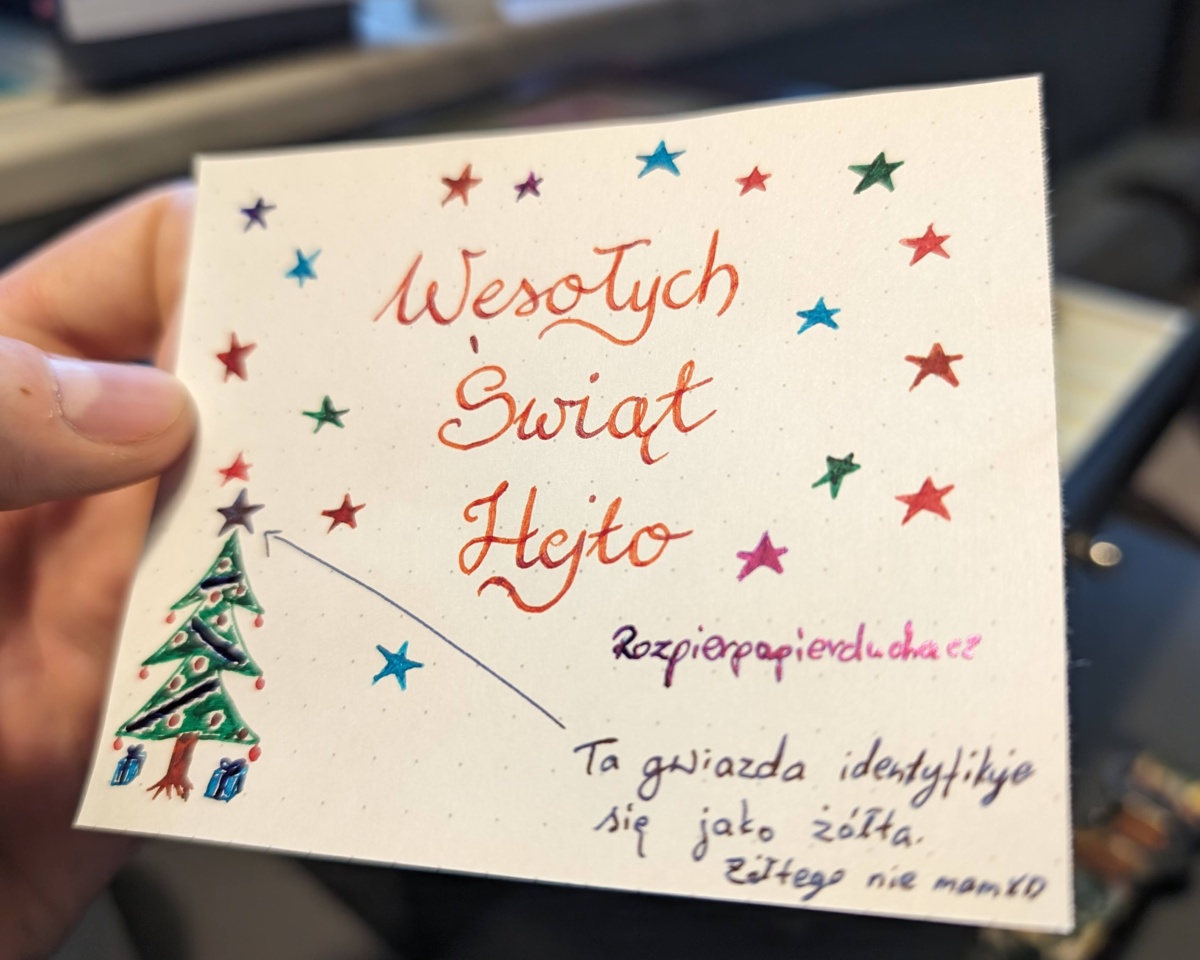 Wesołych
Świąt
Hejto
Rozpierpapierduchacz
Ta gwiazda identyfikuje
się jako żółta.
Żółtego nie mam XD